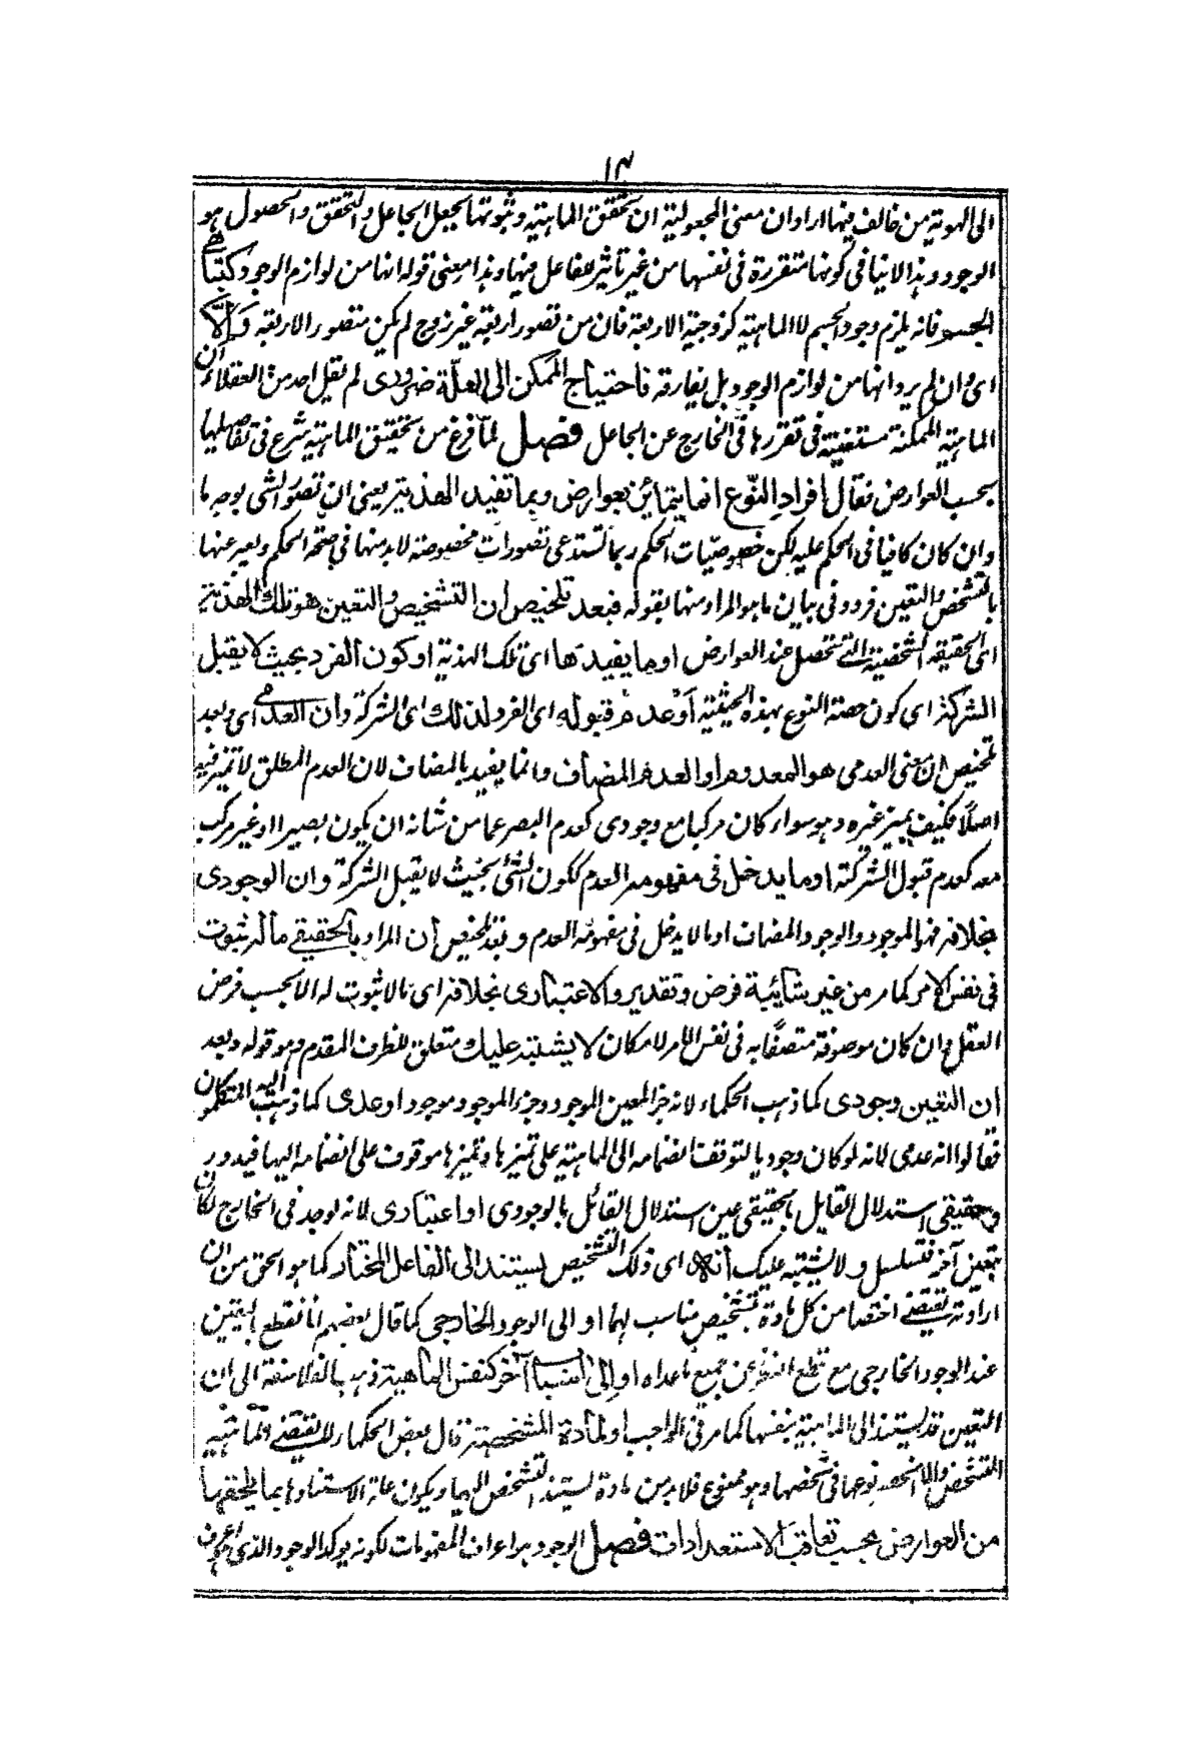 ١٣
الى الهوية من خالف فيها اراد ان معنى المجعولية ان تحقق الماهية وثبوتها بجعل الجاعل والتحقق والحصول هو
الوجود وهذا لا ينافى كونها متقررة فى نفسها من غير تاثير للفاعل فيها وهذا معنى قوله انها من لوازم الوجود كتناهى
الجسم فانه يلزم وجود الجسم لا الماهية كزوجية الاربعة فان من تصور اربعة غير زوج لم يكن متصور الاربعة والّا
اى وان لم يرد انها من لوازم الوجود بل يفارقه فاحتياج الممكن الى العلّة ضرورى لم يقل احد من العقلاء ان
الماهية الممكنة مستغنية فى تقررها فى الخارج عن الجاعل فصل لمّا فرغ من تحقيق الماهية شرع فى تفاصيلها
بحسب العوارض فقال افراد النّوع انما يتمايز بعوارض وبما تفيد الهذية يعنى ان تصور الشى بوجه ما
وان كان كافيا فى الحكم عليه لكن خصوصيّات الحكم ربما تستدعى تصورات مخصوصة لابد منها فى صحة الحكم ويعبر عنها
بالتشخص والتعين فردد فى بيان ما هو المراد منها بقوله فبعد تلخيص ان التشخيص والتعين هو تلك الهذية
اى الحقيقة الشخصية التى تتحصل عند العوارض او ما يفيدها اى تلك الهذية او كون الفرد بحيث لا يقبل
الشركة اى كون حصة النوع بهذه الحيثية او عدم قبوله اى الفرد لذلك اى الشركة وان العدمى اى وبعد
تلخيص ان معنى العدمى هو المعدوم او العدم المضاف وانما يفيد بالمضاف لان العدم المطلق لا تميز فيه
اصلًا فكيف يميز غيره وهو سواء كان مركبا مع وجودى كعدم البصر عما من شانه ان يكون بصيرا او غير مركب
معه كعدم قبول الشركة او ما يدخل فى مفهومه العدم ككون الشئ بحيث لا يقبل الشركة وان الوجودى
بخلافه فهو الموجود والوجود المضاف او ما لا يدخل فى مفهومه العدم وبعد تلخيص ان المراد بالحقيقى ما له ثبوت
فى نفس الامر كما مر من غير شائبة فرض وتقدير والاعتبارى بخلافه اى ما لا ثبوت له الا بحسب فرض
العقل وان كان موصوفه متصفًا به فى نفس الامر لامكان لا يشتبه عليك متعلق للظرف المقدم وهو قوله وبعد
ان التعين وجودى كما ذهب الحكماء لانه جزء المعين الموجود وجزء الموجود موجود او عدمى كما ذهب اليه المتكلمون
فقالوا انه عدمى لانه لو كان وجوديا لتوقف انضمامه الى الماهية على تميزها وتميزها موقوف على انضمامه اليها فيدور
وحقيقى استدلال القايل بالحقيقى عين استدلال القائل بالوجودى او اعتبارى لانه لو وجد فى الخارج لكان
بتعين آخر فتسلسل ولا يشتبه عليك أنه اى ذلك التشخيص يستند الى الفاعل المختار كما هو الحق من ان
ارادته تقتضى اختصاص كل مادة بتشخيص مناسب لها او الى الوجود الخارجى كما قال بعضهم انا نقطع بالتعين
عند الوجود الخارجى مع قطع النظر عن جميع ما عداه او الى اسباب آخر كنفس الماهية ذهب الفلاسفة الى ان
التعين قد يستند الى الماهية بنفسها كما مر فى الواجب او لمادة المشخصة قال بعض الحكماء لا تقتضى الماهية
التشخص والا انحصر نوعها فى شخصها وهو ممنوع فلا بد من مادة يستند التشخص اليها ويكون علة الاستناد بما يلحقها
من العوارض بحسب تعاقب الاستعدادات فصل الوجود يرادف المفهومات لكونه يوكد الوجود الذى اعرف